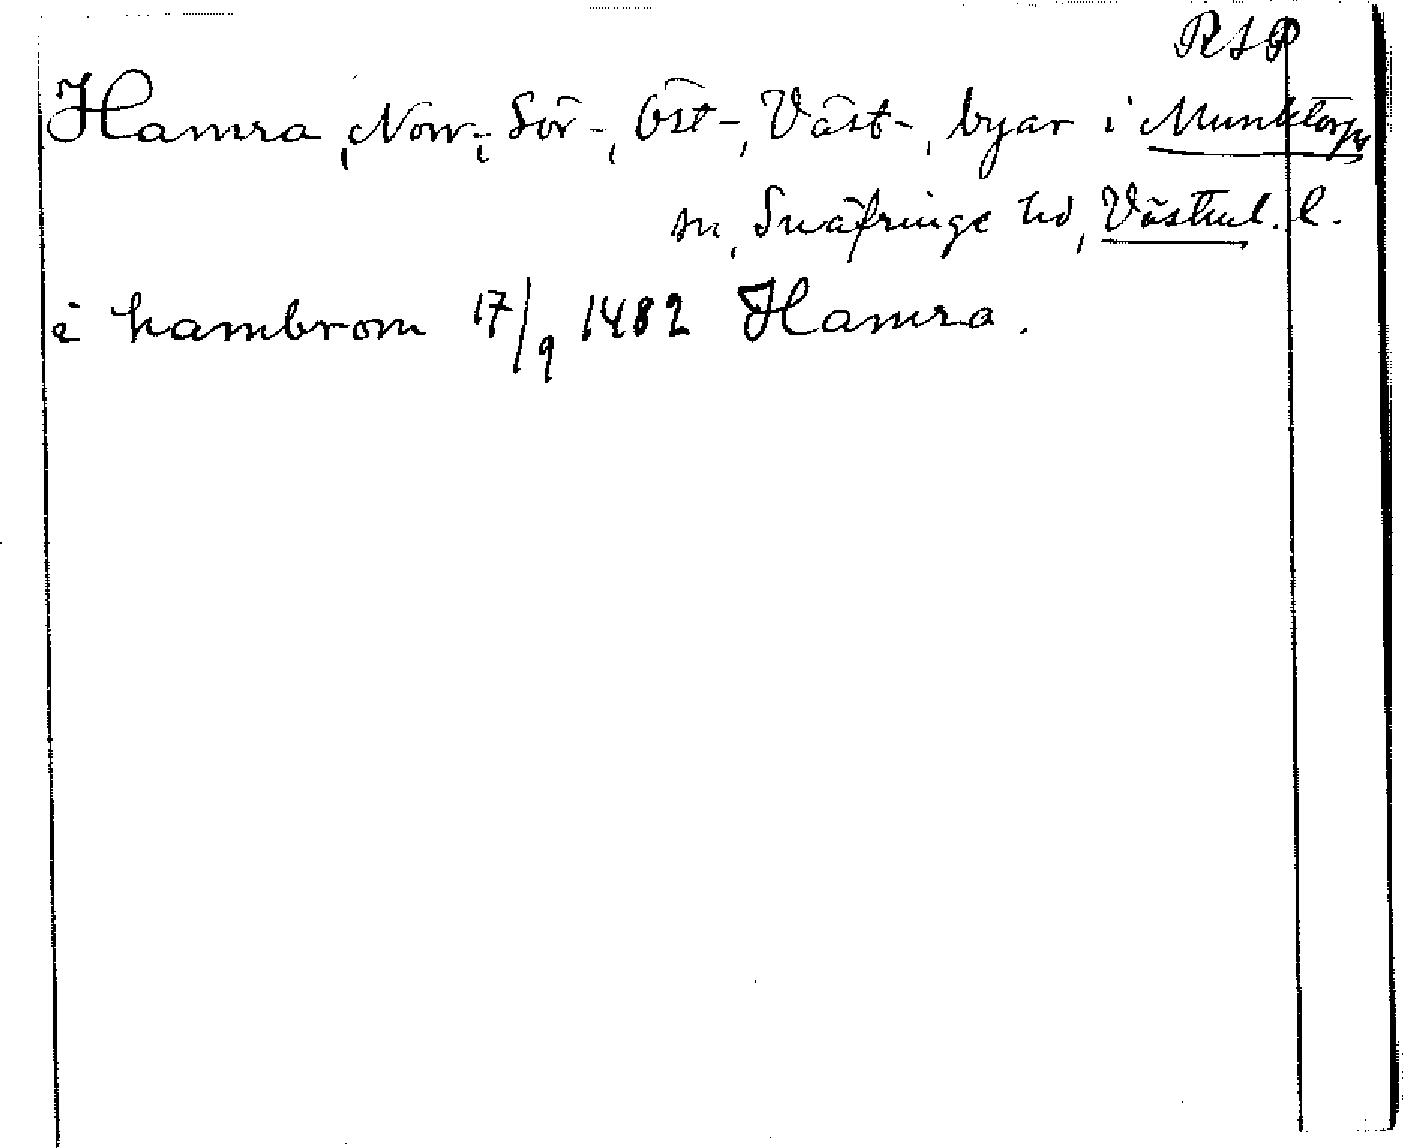 RSP
Hamra, Norr-, Sör-, Öst-, Väst-, byar i Munktorps
sn, Snäfringe hd, Västml. l.
i hambrom 17/9 1482 Hamra.